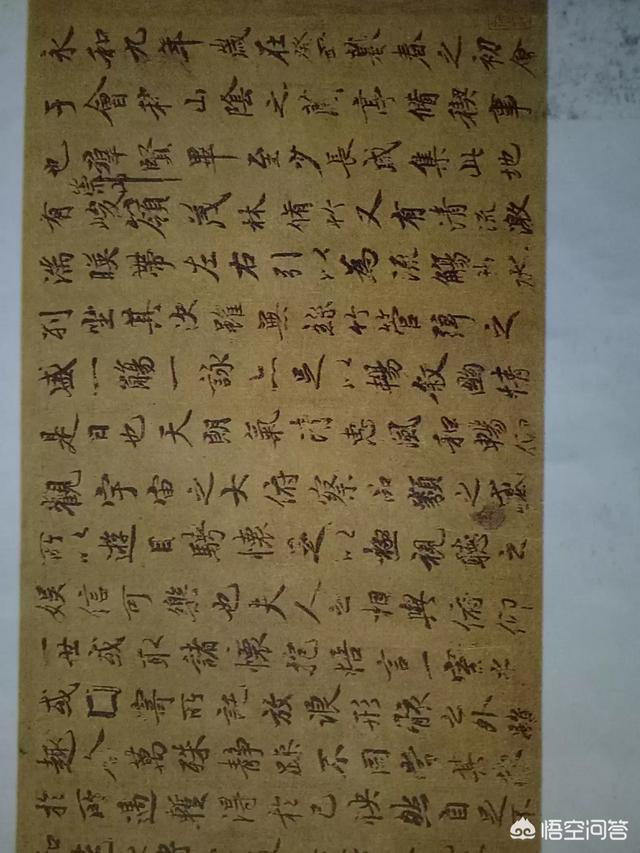 永和九年歲在癸丑暮春之初會
于會稽山陰之蘭亭脩稧事
也群賢畢至少長咸集此地
有崇山峻領茂林脩竹又有清流激
湍暎帶左右引以為流觴曲水
列坐其次雖無絲竹管弦之
盛一觴一詠亦足以暢敘幽情
是日也天朗氣清惠風和暢仰
觀宇宙之大俯察品類之盛
所以遊目騁懷足以極視聽之
娛信可樂也夫人之相與俯仰
一世或取諸懷抱悟言一室之
或因寄所託放浪形骸之外雖
趣舍萬殊靜躁不同當其欣
於所遇暫得於己快然自足不
悟空问答